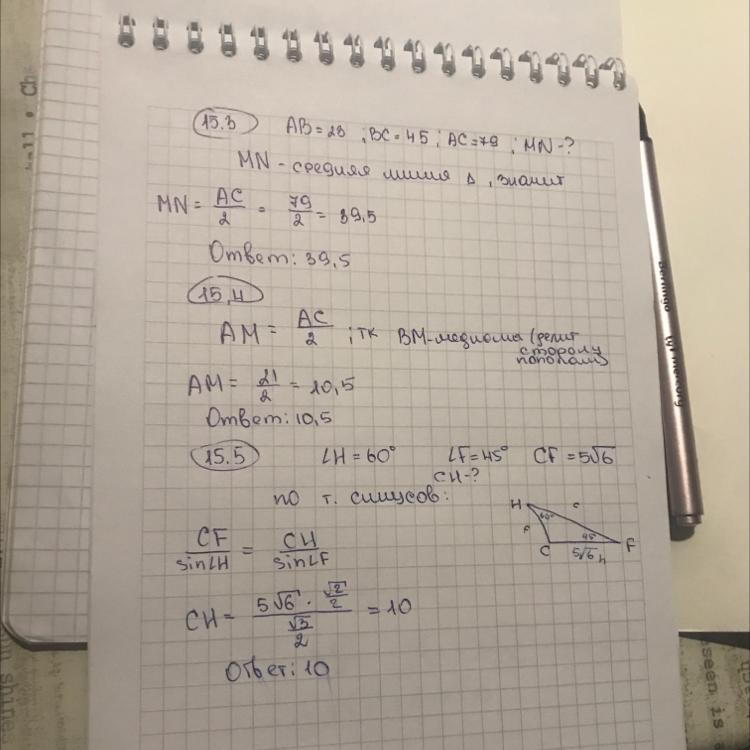 15.3 AB = 28 ; BC = 45 ; AC = 79 ; MN - ?
MN - средняя линия Δ, значит
MN = AC/2 = 79/2 = 39,5
Ответ: 39,5
15,4
AM = AC/2 ; тк BM - медиана (делит
сторону
пополам)
AM = 21/2 = 10,5
Ответ: 10,5
15.5 ∠H = 60° ∠F = 45° CF = 5√6
CH - ?
по т. синусов:
H c
60°
f 45°
C 5√6 h F
CF/sin∠H = CH/sin∠F
CH = (5√6 · √2/2)/(√3/2) = 10
Ответ: 10
Berlingo
seen is a